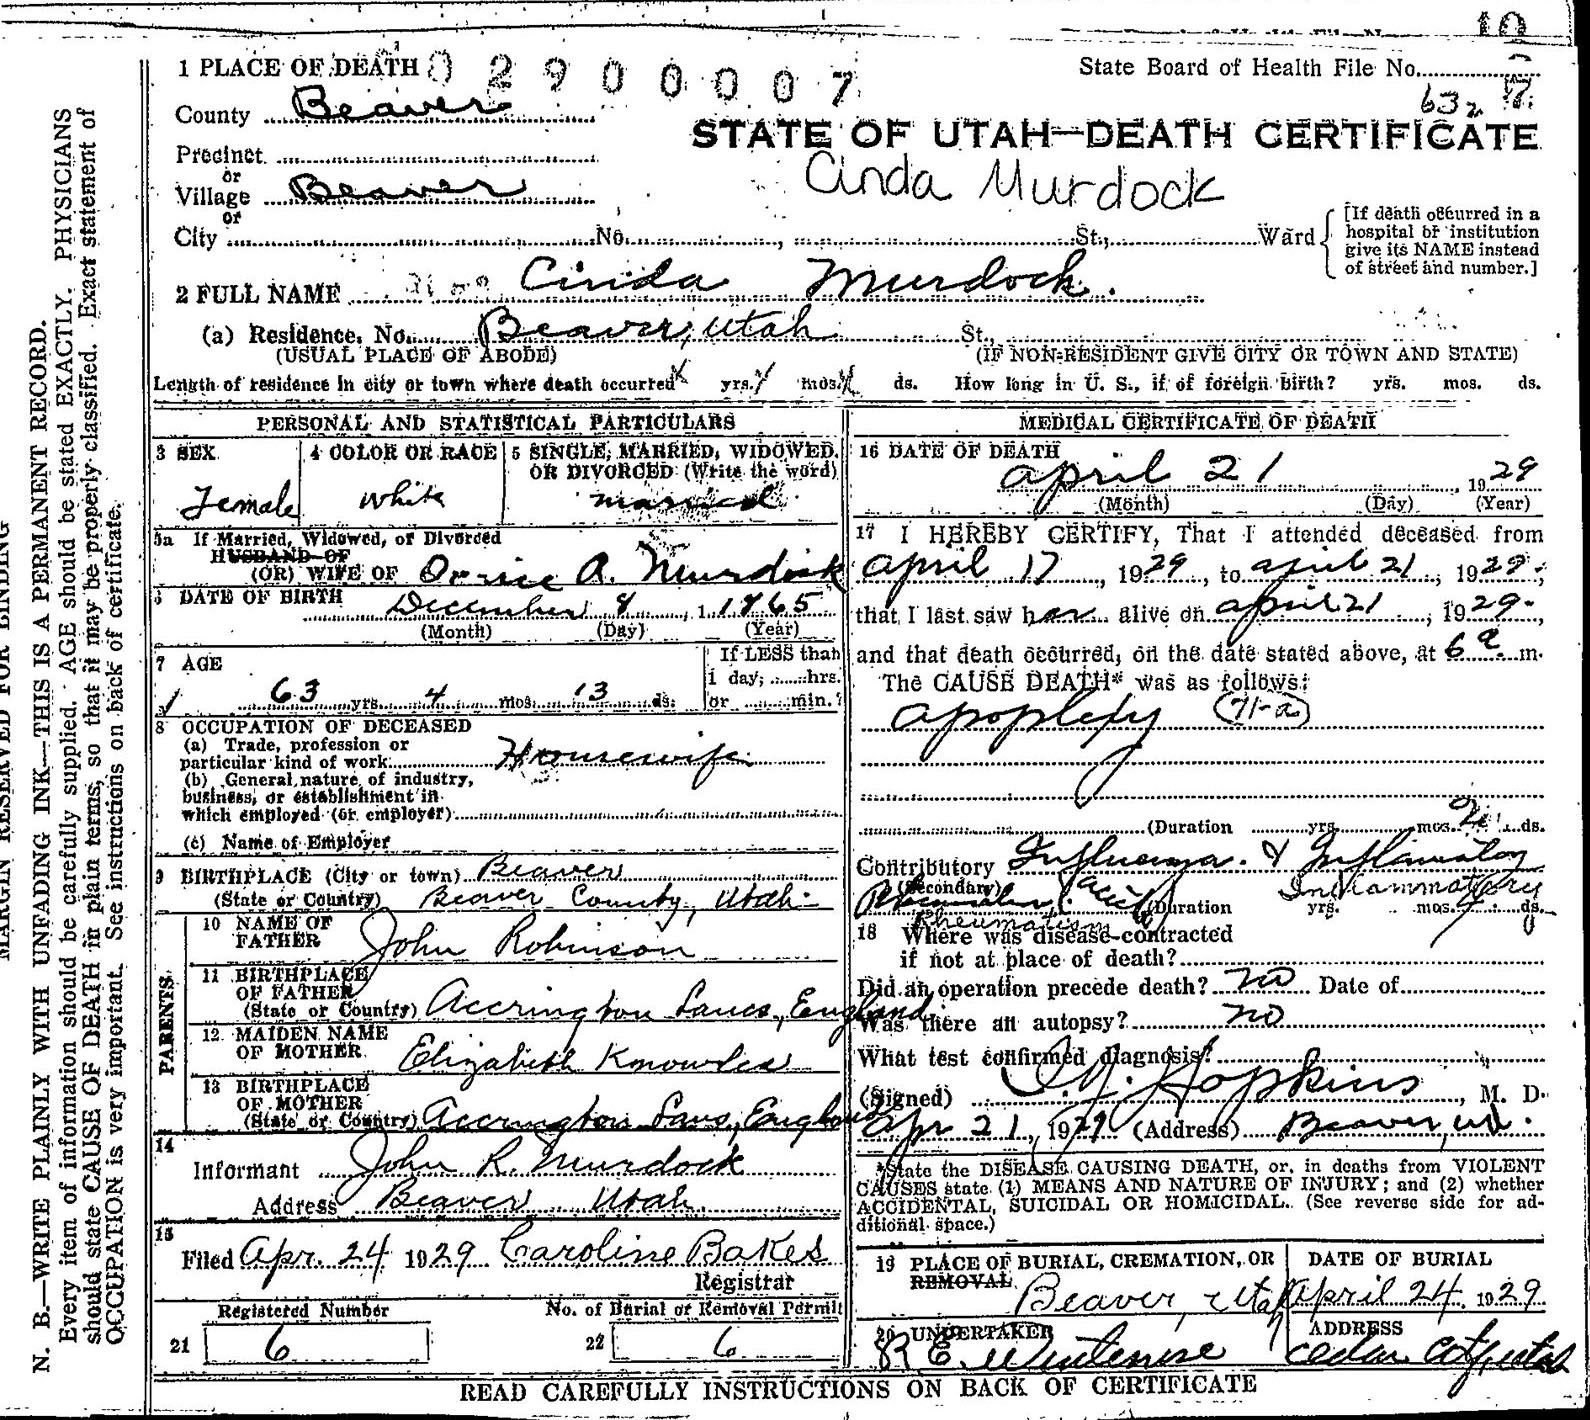 10
1 PLACE OF DEATH 02900007
State Board of Health File No. 7
632
County Beaver
STATE OF UTAH—DEATH CERTIFICATE
Precinct
or
Cinda Murdock
Village Beaver
or
City No. , St., Ward
[If death occurred in a
hospital or institution
give its NAME instead
of street and number.]
2 FULL NAME Cinda Murdock.
(a) Residence. No. Beaver, Utah St.,
(USUAL PLACE OF ABODE) (IF NON-RESIDENT GIVE CITY OR TOWN AND STATE)
Length of residence in city or town where death occurred yrs. mos. ds. How long in U. S., if of foreign birth? yrs. mos. ds.
PERSONAL AND STATISTICAL PARTICULARS
3 SEX
Female
4 COLOR OR RACE
White
5 SINGLE, MARRIED, WIDOWED.
OR DIVORCED (Write the word)
married
5a If Married, Widowed, or Divorced
HUSBAND OF
(OR) WIFE OF Orrice A. Murdock
6 DATE OF BIRTH December 8 , 1865
(Month) (Day) (Year)
7 AGE
63 yrs. 4 mos. 13 ds.
If LESS than
1 day; ......hrs.
or ......min.?
8 OCCUPATION OF DECEASED
(a) Trade, profession or
particular kind of work Housewife
(b) General nature of industry,
business, or establishment in
which employed (or employer)
(c) Name of Employer
9 BIRTHPLACE (City or town) Beaver
(State or Country) Beaver County, Utah.
PARENTS
10 NAME OF
FATHER John Robinson
11 BIRTHPLACE
OF FATHER
(State or Country) Accrington Lancs, England
12 MAIDEN NAME
OF MOTHER Elizabeth Knowles
13 BIRTHPLACE
OF MOTHER
(State or Country) Accrington Lans, England
14
Informant John R. Murdock
Address Beaver Utah.
15
Filed Apr. 24 1929 Caroline Bakes
Registrar
Registered Number No. of Burial or Removal Permit
21 6 22 6
MEDICAL CERTIFICATE OF DEATH
16 DATE OF DEATH
april 21 , 1929
(Month) (Day) (Year)
17 I HEREBY CERTIFY, That I attended deceased from
april 17 , 1929, to april 21, 1929.
that I last saw her alive on april 21 , 1929.,
and that death occurred, on the date stated above, at 6 a. m.
The CAUSE DEATH* was as follows:
apoplexy (71-a)
(Duration yrs. mos. 2 ds.
Contributory Influenza. & Inflamatory
(Secondary) Inflammatory
(Duration yrs. mos. 4 ds.
Rheumatism
18 Where was disease contracted
if not at place of death?
Did an operation precede death? no Date of
Was there an autopsy? no
What test confirmed diagnosis?
(Signed) Hopkins , M. D.
Apr 21, 1929 (Address) Beaver, Ut.
*State the DISEASE CAUSING DEATH, or, in deaths from VIOLENT
CAUSES state (1) MEANS AND NATURE OF INJURY; and (2) whether
ACCIDENTAL, SUICIDAL OR HOMICIDAL. (See reverse side for ad-
ditional space.)
19 PLACE OF BURIAL, CREMATION, OR
REMOVAL
Beaver, Utah
DATE OF BURIAL
April 24, 1929
20 UNDERTAKER
R E
ADDRESS
Cedar City, Utah
READ CAREFULLY INSTRUCTIONS ON BACK OF CERTIFICATE
MARGIN RESERVED FOR BINDING
N. B.—WRITE PLAINLY WITH UNFADING INK—THIS IS A PERMANENT RECORD.
Every item of information should be carefully supplied. AGE should be stated EXACTLY. PHYSICIANS
should state CAUSE OF DEATH in plain terms, so that it may be properly classified. Exact statement of
OCCUPATION is very important. See instructions on back of certificate.